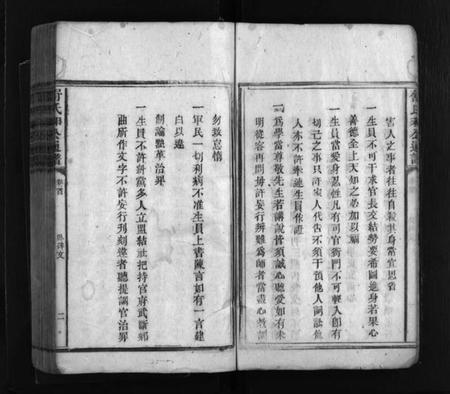 害人之事者往往自殺其身常宜思省
一生員不可干求官長交結勢要希圖進身若果心
善德全上天知之必加以福
一生員當愛身忍性凡有司官衙門不可輕入即有
切己之事只許家人代告不許干預他人詞訟他
人亦不許牽連生員作證
一為學當尊敬先生若講說皆須誠心聽受如有未
明從容再問毋許妄行辨難為師者當盡心教訓
勿致怠惰
一軍民一切利病不准生員上書陳言如有一言建
白以違
制論黜革治罪
一生員不許糾黨多人立盟結社把持官府武斷鄉
曲所作文字不許妄行刊刻違者聽提調官治罪
卷首
卧碑文
二